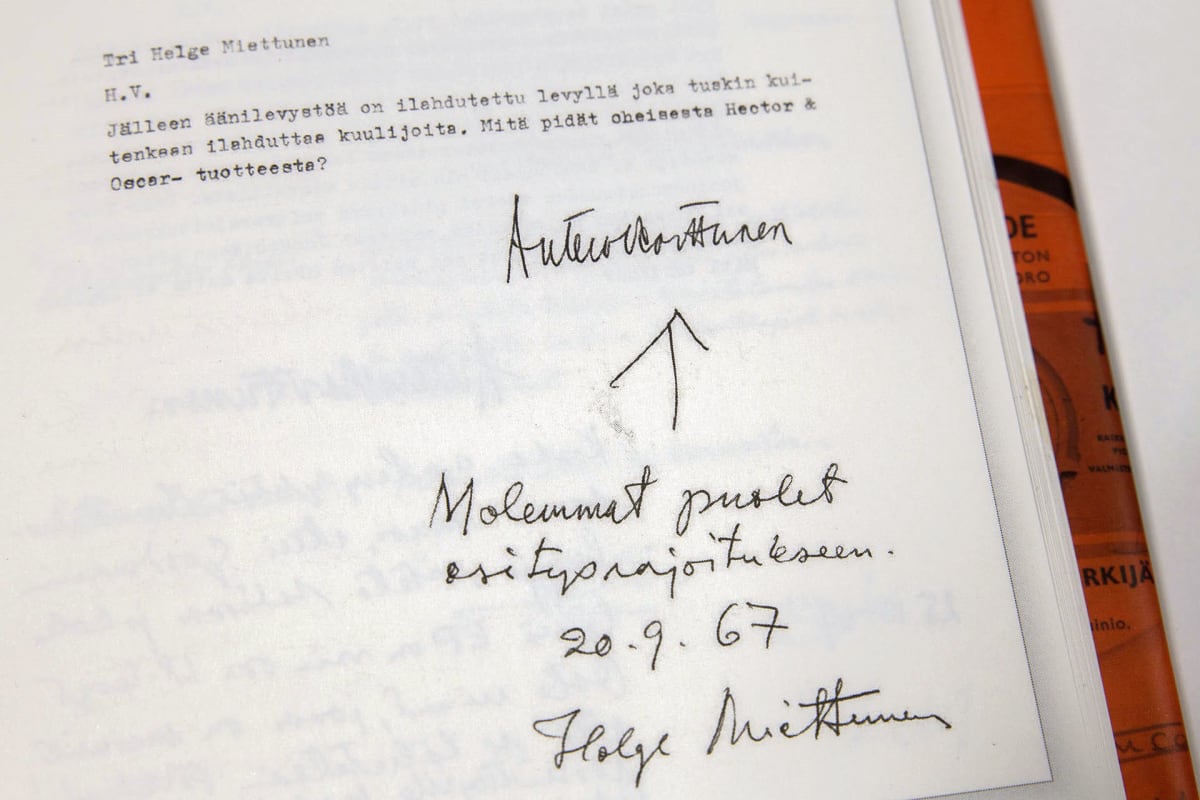 Tri Helge Miettunen
H.V.
Jälleen äänilevystöä on ilahdutettu levyllä joka tuskin kui-
tenkaan ilahduttaa kuulijoita. Mitä pidät oheisesta Hector &
Oscar- tuotteesta?
Antero Karttunen
Molemmat puolet
esitysrajoitukseen.
20.9.67
Helge Miettunen
DE
TON
ORO
T
K
RKIJÄ
inio.